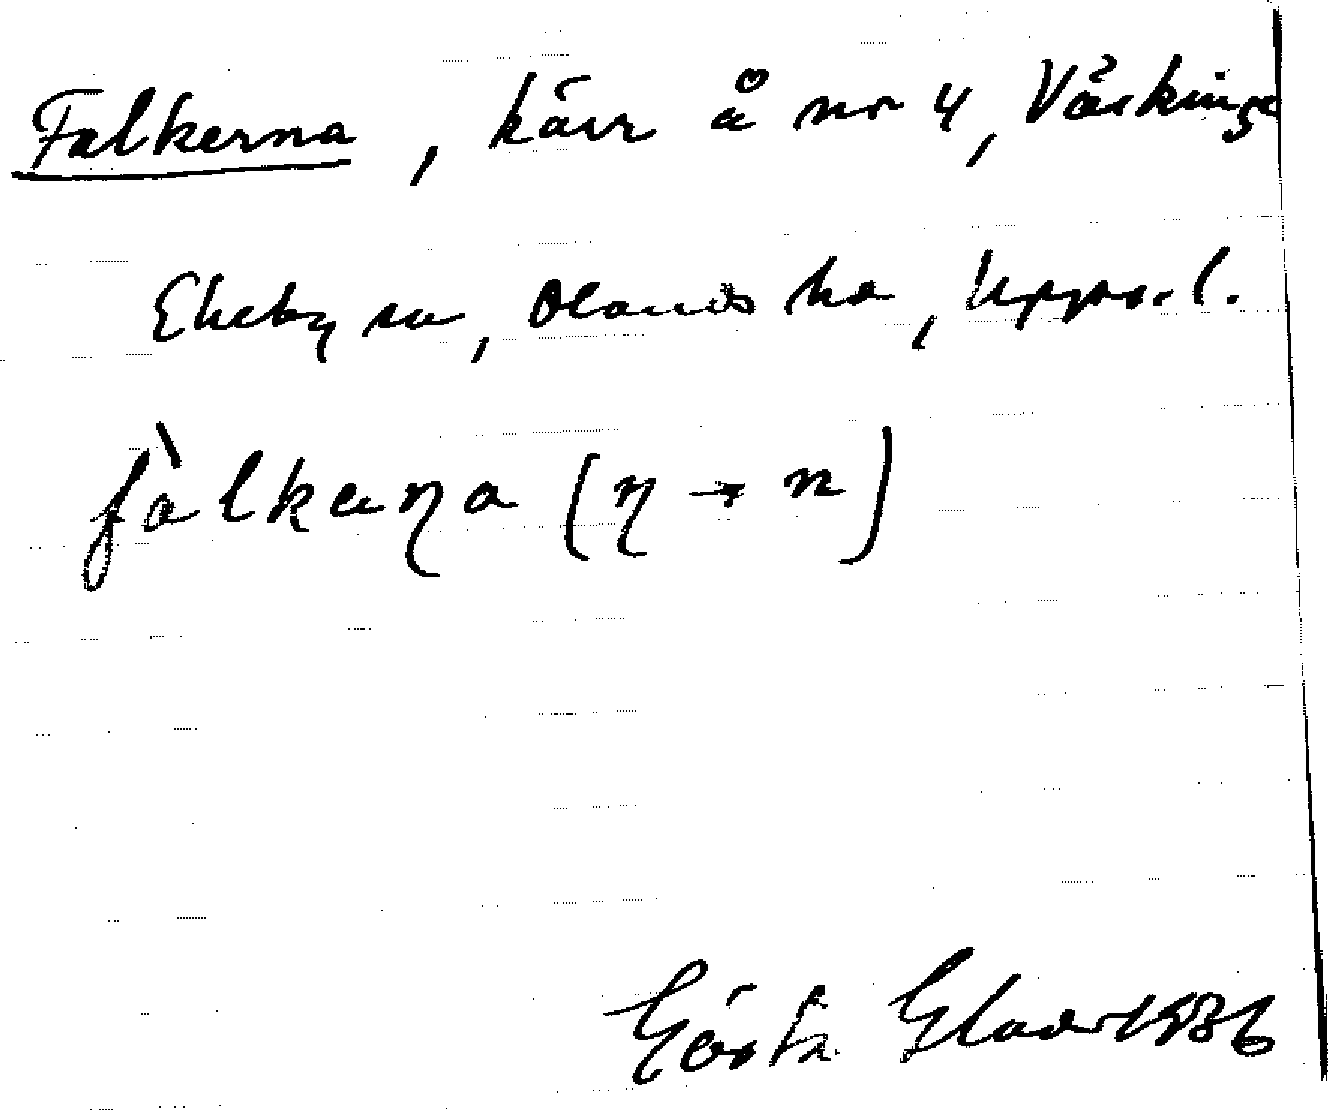 Falkerna, kärr å nr 4, Våskinge
Ekeby sn, Olands hd, Uppsal.
fàlkeɳa (ɳ → n)
Gösta Elander 1936